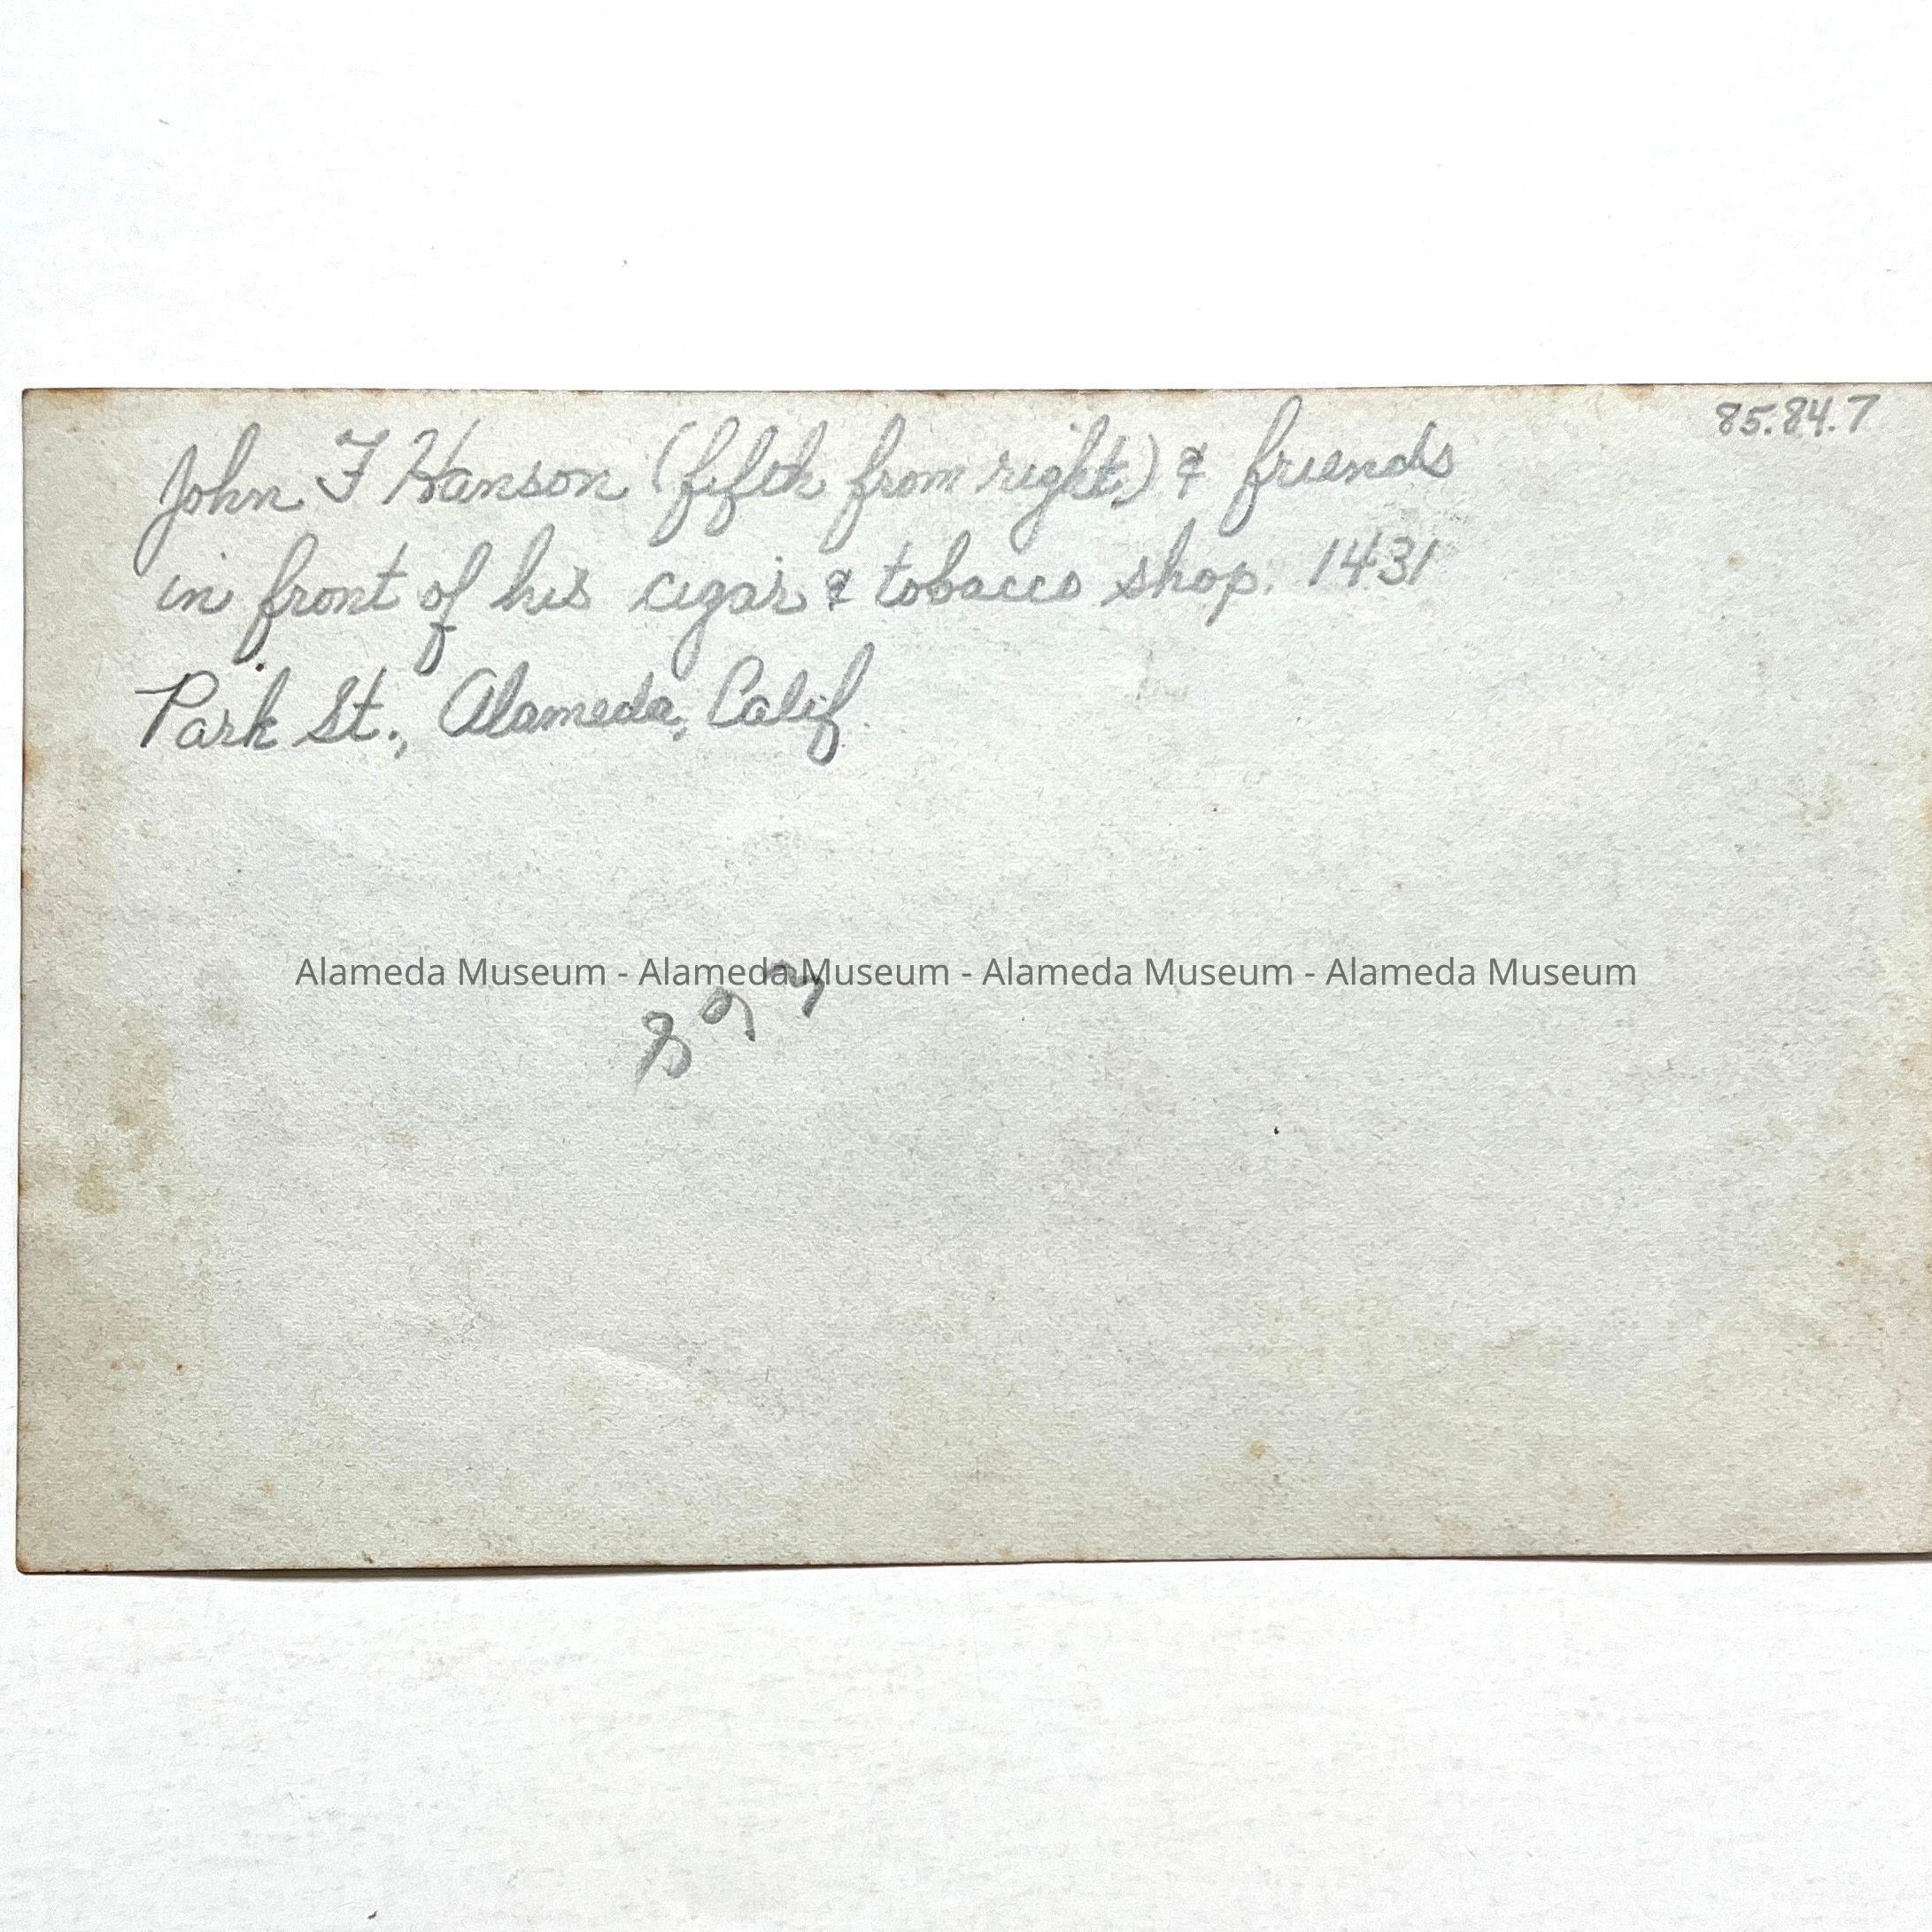 85.84.7
John F Hanson (fifth from right) & friends
in front of his cigar & tobacco shop. 1431
Park St., Alameda, Calif.
Alameda Museum - Alameda Museum - Alameda Museum - Alameda Museum